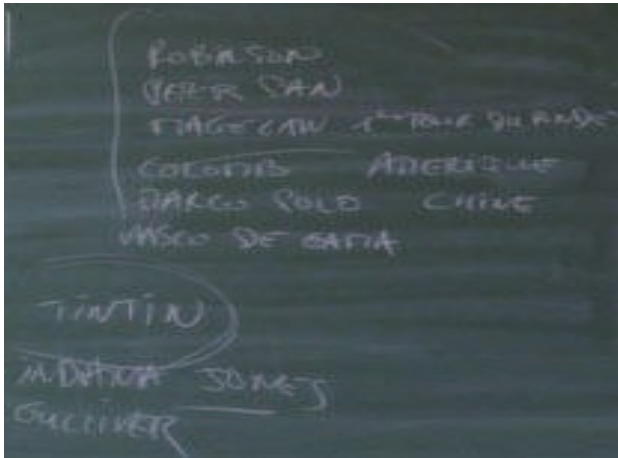 ROBINSON
PETER PAN
MAGELLAN 1er TOUR DU MONDE
COLOMB AMERIQUE
MARCO POLO CHINE
VASCO DE GAMA
TINTIN
INDIANA JONES
GULLIVER